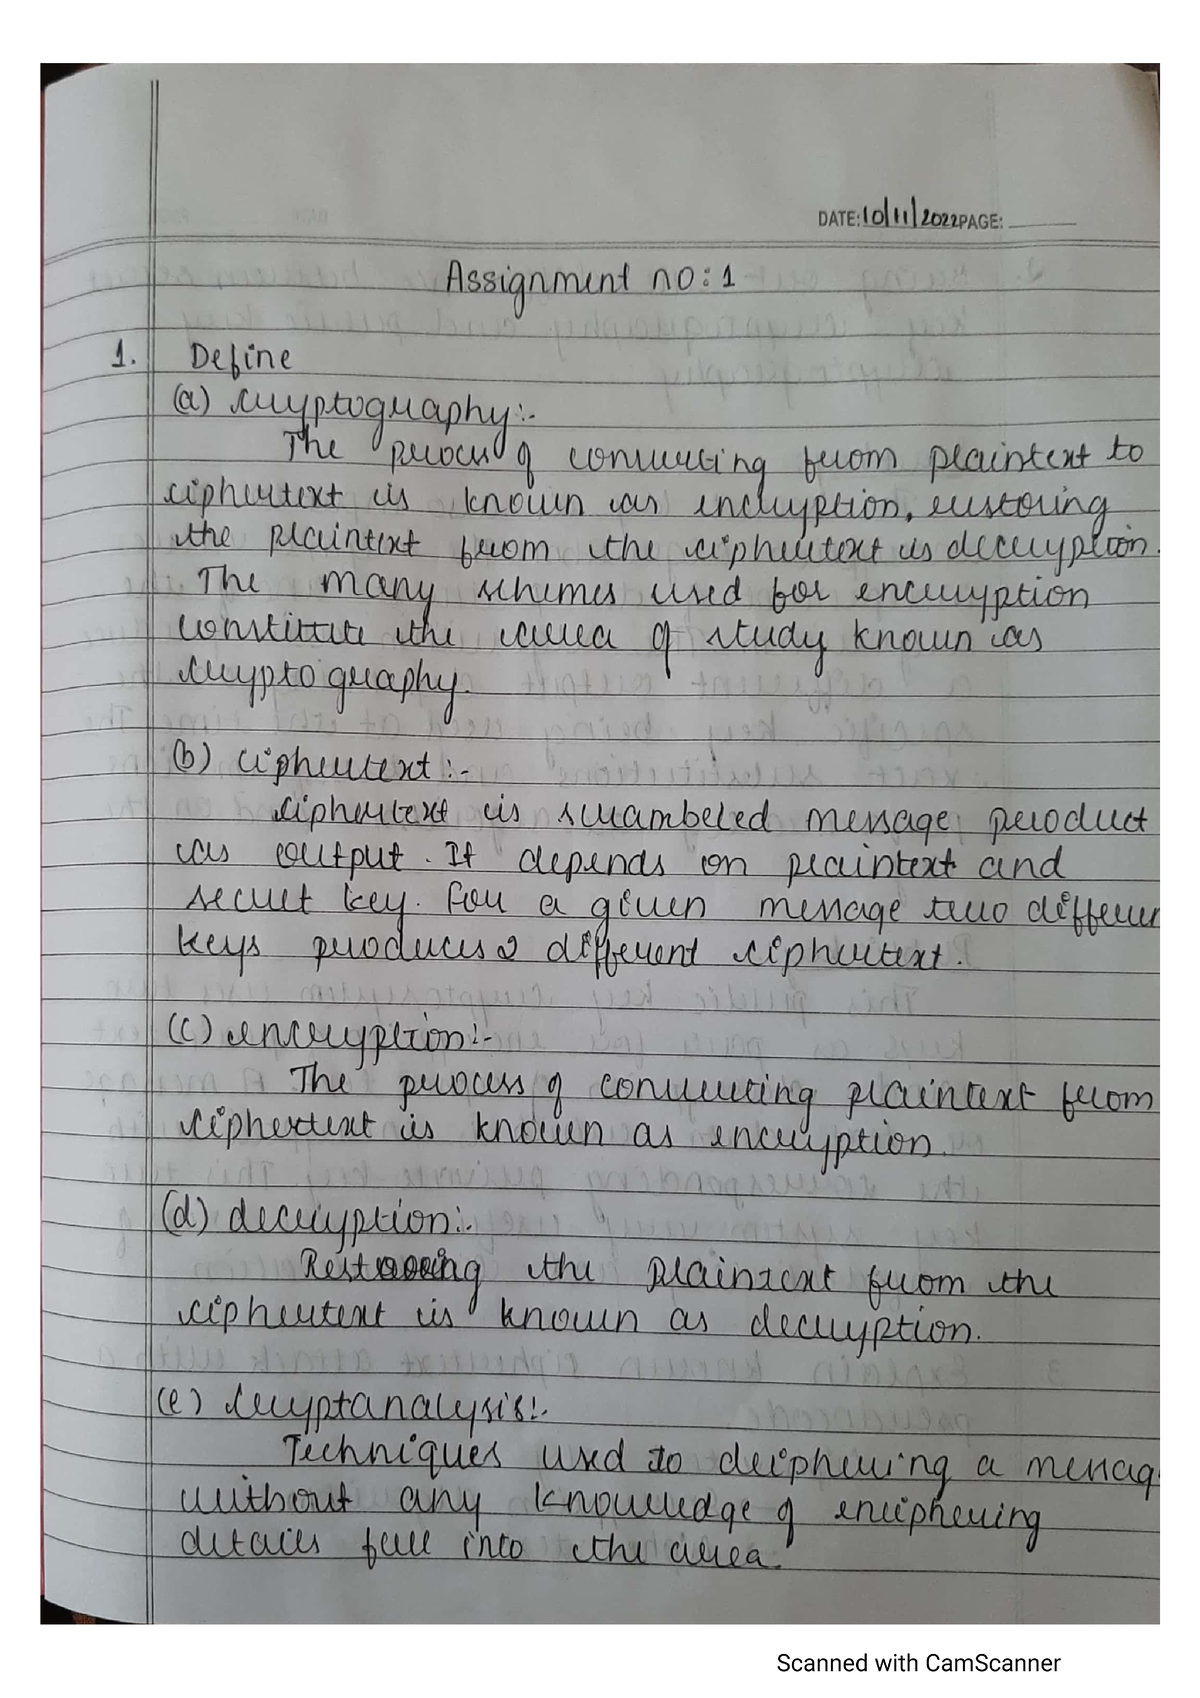 DATE: 10/11/2022 PAGE:
Assignment no: 1
1. Define
(a) cryptography:-
The process of converting from plaintext to
ciphertext is known as encryption, restoring
the plaintext from the ciphertext is decryption.
The many schemes used for encryption
constitute the area of study known as
cryptography.
(b) ciphertext :-
ciphertext is scrambeled message product
as output. It depends on plaintext and
secret key. For a given message two differen
keys produces 2 different ciphertext.
(c) encryption:-
The process of converting plaintext from
ciphertext is known as encryption.
(d) decryption:-
Restoring the plaintext from the
ciphertext is known as decryption.
(e) cryptanalysis:-
Techniques used to deciphering a messag
without any knowledge of enciphering
details fall into the area.
Scanned with CamScanner